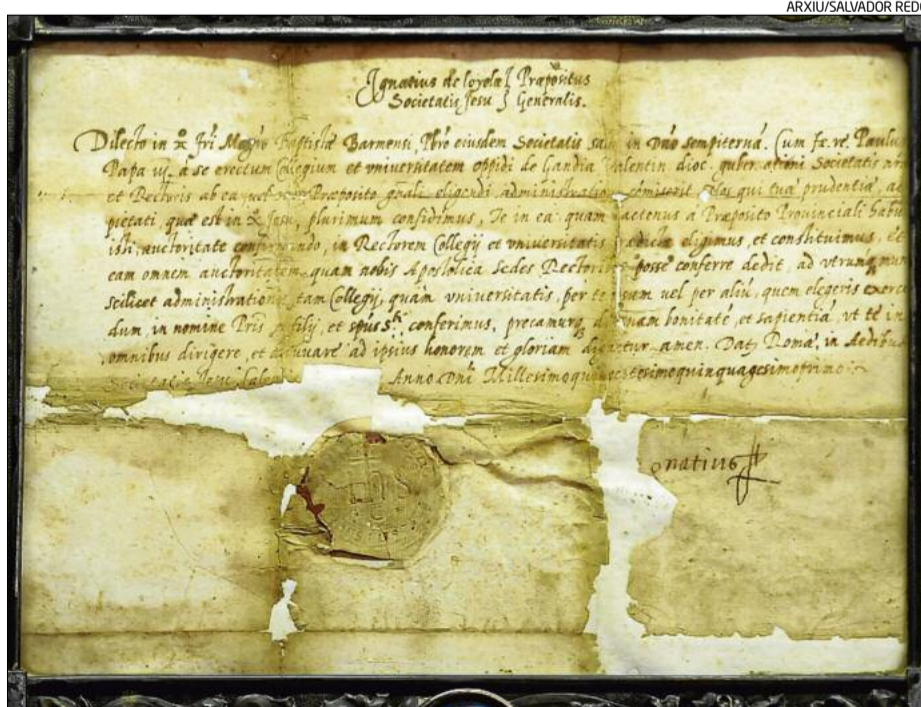 ARXIU/SALVADOR RED
Ignatius de loyola Præpositus
Societatis Jesu Generalis.
Dilecto in Fri Magro Baptistæ Barmensi, Pbro eiusdem Societatis sal in Dno sempiternã. Cum fæ. re. Paulus
Papa iij. a se erectum Collegium et vniuersitatem oppidi de Gandia Valentin dioc. gubernationi Societatis
et Rectoris ab ea Præposito gnãli eligendi administrationi comiserit Nos qui tuæ prudentiæ, ac
pietati, quæ est in Jesu, plurimum confidimus, Te in ea quam hactenus a Præposito Prouinciali habu
isti, auctoritate confirmando, in Rectorem Collegij et vniuersitatis eligimus, et constituimus, et
eam omnem auctoritatem quam nobis Apostolica Sedes Rectori posse conferre dedit, ad vtrumq mun
scilicet administrationem tam Collegij, quàm vniuersitatis, per te uel per aliũ, quem elegeris exercen
dum in nomine Pris et filij, et spũs Sti conferimus, precamurq diuinam bonitatẽ, et sapientiã vt te in
omnibus dirigere, et adiuuare ad ipsius honorem et gloriam dignetur amen. Datȝ Romæ, in Aedibus
Societatis Anno Dni Millesimoquingentesimoquinquagesimoprimo
gnatius